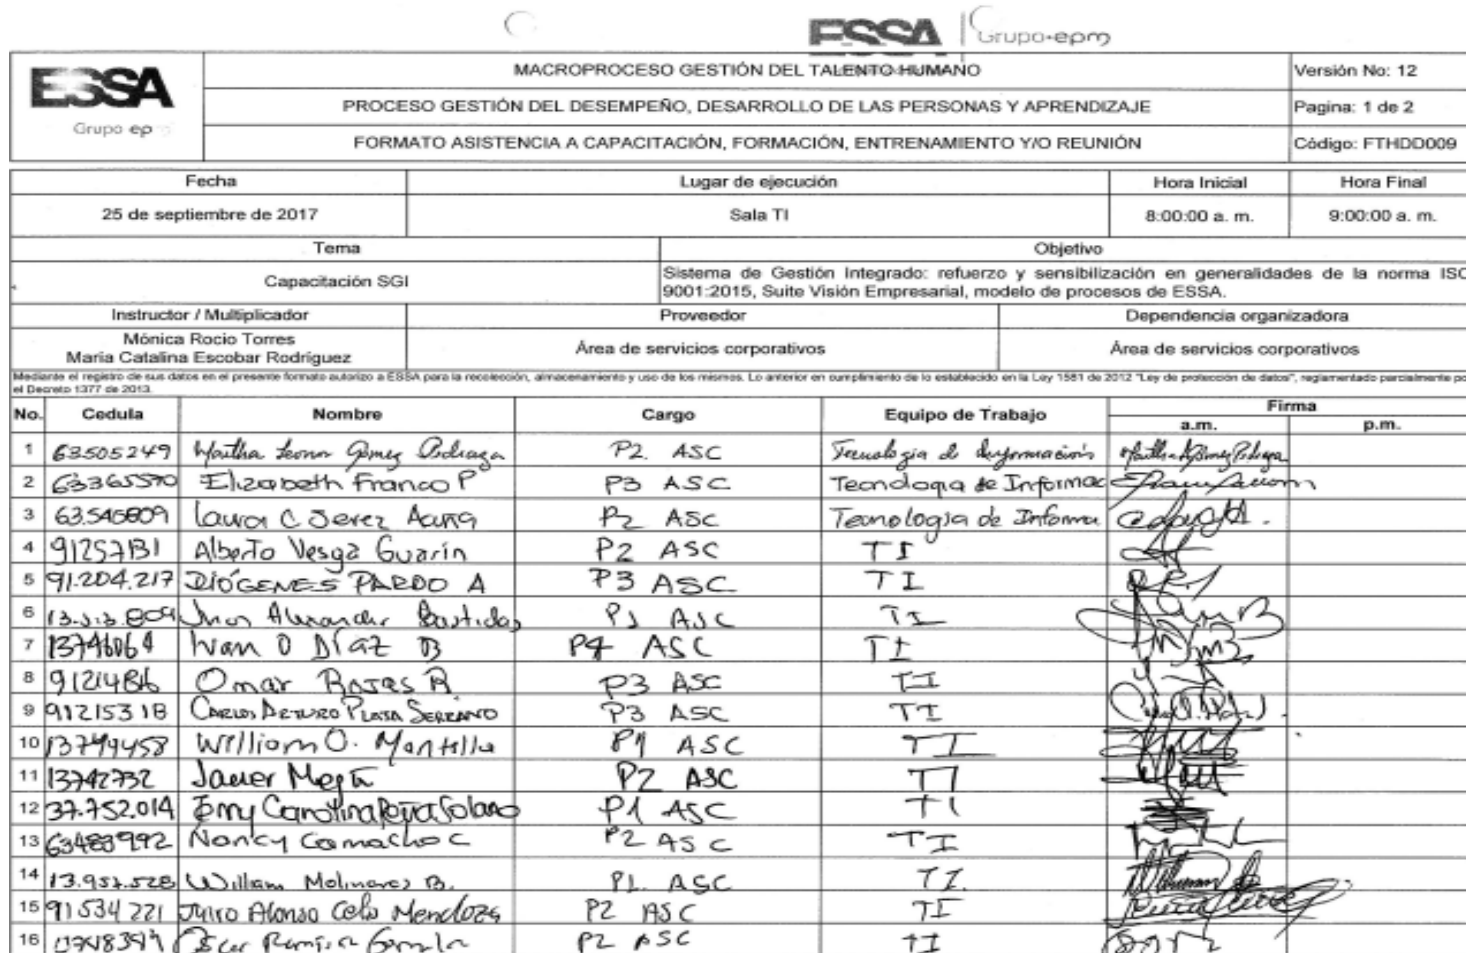 ESSA Grupo·epm
ESSA
Grupo ep
MACROPROCESO GESTIÓN DEL TALENTO HUMANO
Versión No: 12
PROCESO GESTIÓN DEL DESEMPEÑO, DESARROLLO DE LAS PERSONAS Y APRENDIZAJE
Pagina: 1 de 2
FORMATO ASISTENCIA A CAPACITACIÓN, FORMACIÓN, ENTRENAMIENTO Y/O REUNIÓN
Código: FTHDD009
Fecha Lugar de ejecución Hora Inicial Hora Final
25 de septiembre de 2017 Sala TI 8:00:00 a. m. 9:00:00 a. m.
Tema Objetivo
Capacitación SGI
Sistema de Gestión Integrado: refuerzo y sensibilización en generalidades de la norma ISO
9001:2015, Suite Visión Empresarial, modelo de procesos de ESSA.
Instructor / Multiplicador Proveedor Dependencia organizadora
Mónica Rocio Torres
Maria Catalina Escobar Rodriguez
Área de servicios corporativos Área de servicios corporativos
Mediante el registro de sus datos en el presente formato autorizo a ESSA para la recolección, almacenamiento y uso de los mismos. Lo anterior en cumplimiento de lo establecido en la Ley 1581 de 2012 "Ley de protección de datos", reglamentado parcialmente po
el Decreto 1377 de 2013.
No. Cedula Nombre Cargo Equipo de Trabajo Firma
a.m. p.m.
1 63505249 Martha Leonor Gómez Pedraza P2. ASC Tecnologia de Información
2 63365570 Elizabeth Franco P P3 ASC Tecnologia de Informac
3 Laura C Jerez P2 ASC Tecnologia de Informa
4 91257131 Alberto Vesga Guarín P2 ASC TI
5 91.204.217 DIÓGENES PARDO A P3 ASC TI
6 Alexander Bastidas P1 ASC TI
7 Ivan O Díaz B P4 ASC TI
8 Omar Rojas R P3 ASC TI
9 91215318 CARLOS ARTURO PLATA SERRANO P3 ASC TI
10 13749458 William O. Mantilla P1 ASC TI
11 13742732 Javier Mejía P2 ASC TI
12 37.752.014 Carolina Solano P1 ASC TI
13 Nancy Camacho C P2 ASC TI
14 13.957.528 William Molinares B. P1. ASC TI.
15 91534221 Alonso Mendoza P2 ASC TI
16 P2 ASC TI